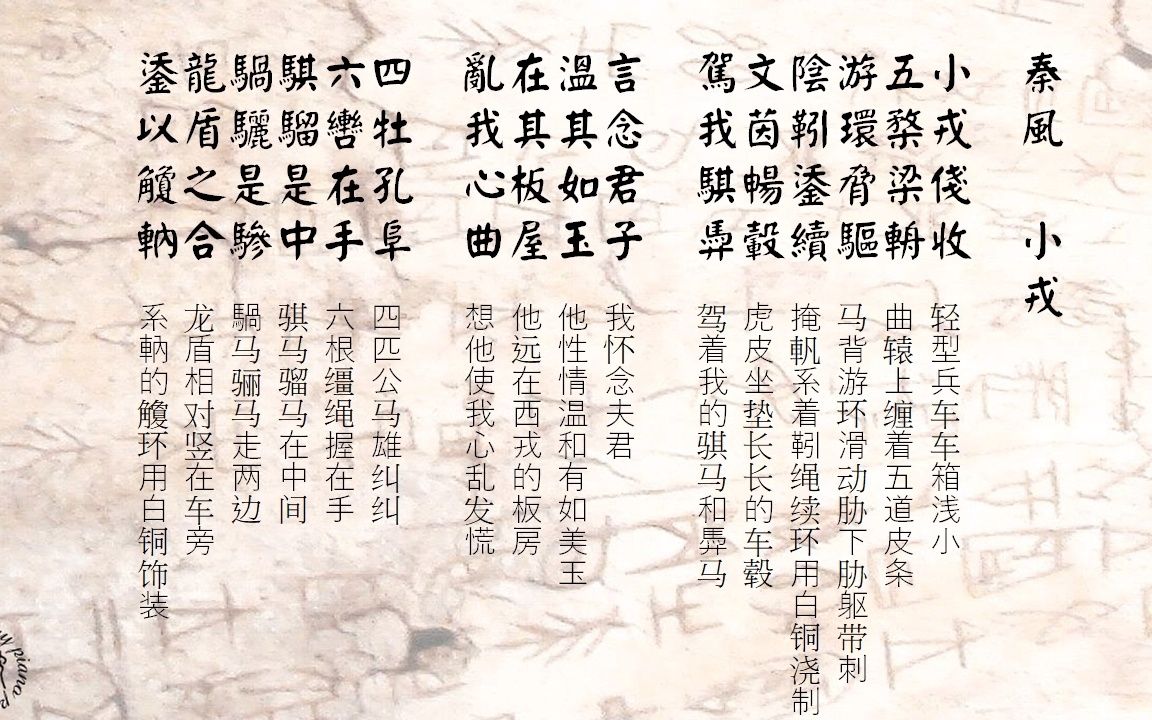 秦風 小戎
小戎俴收
五楘梁輈
游環脅驅
陰靷鋈續
文茵暢轂
駕我騏馵
言念君子
溫其如玉
在其板屋
亂我心曲
四牡孔阜
六轡在手
騏騮是中
騧驪是驂
龍盾之合
鋈以觼軜
轻型兵车车箱浅小
曲辕上缠着五道皮条
马背游环滑动胁下胁驱带刺
掩軓系着靷绳续环用白铜浇制
虎皮坐垫长长的车毂
驾着我的骐马和馵马
我怀念夫君
他性情温和有如美玉
他远在西戎的板房
想他使我心乱发慌
四匹公马雄纠纠
六根缰绳握在手
骐马骝马在中间
騧马骊马走两边
龙盾相对竖在车旁
系軜的觼环用白铜饰装
piano